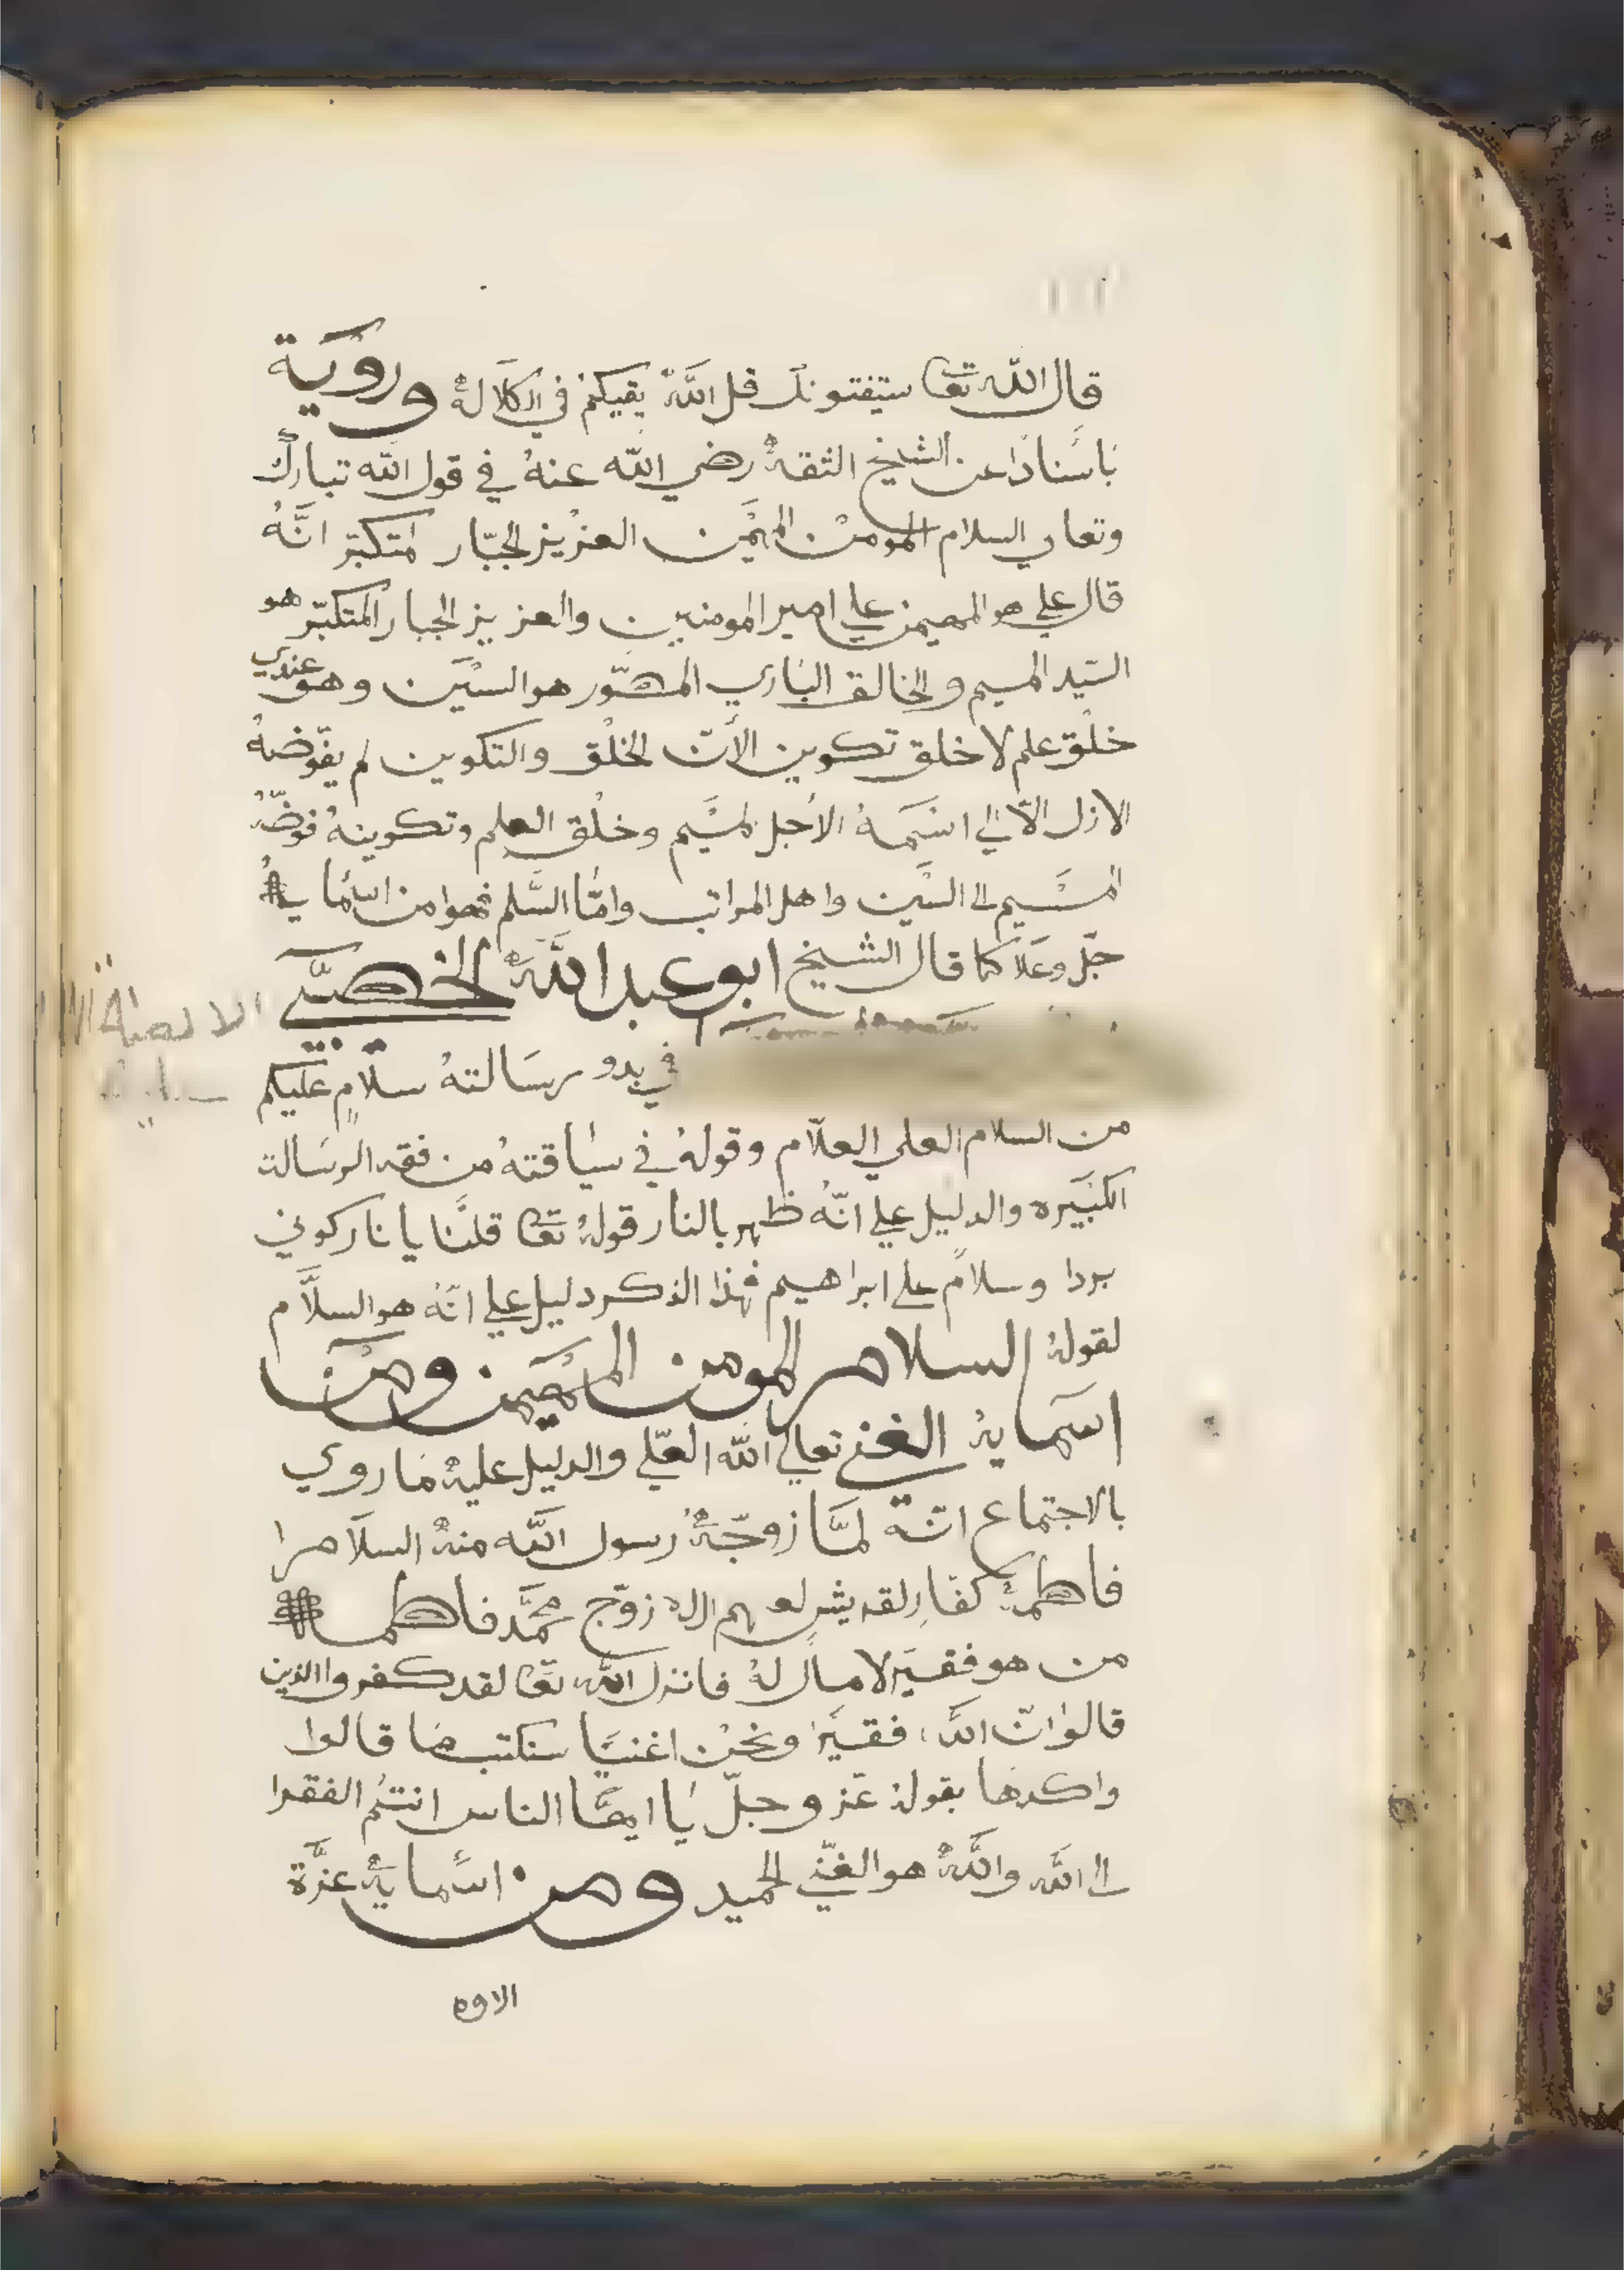 قال الله تعا ستفتونك قل الله يقيكم في الكلالة وروية
باسناد عن الشيخ الثقة رضي الله عنه في قول الله تبارك
وتعالي السلام المومن المهيمن العزيز الجبار المتكبر انه
قال علي هو المهيمن علي امير المومنين والعزيز الجبار المتكبر هو
السيد الميم والخالق الباري المصور هو السين وهو عندي
خلق علم لا خلق تكوين الأن الخلق والتكوين لم يفوضه
الازل الا الي اسمه الأجل الميم وخلق العلم وتكوينه فوضه
الميم الي السين واهل المراتب واما السلم فهوا من اسمايه
جل وعلا كما قال الشيخ ابو عبد الله الخصيبي
في بدو رسالته سلام عليكم
من السلام العلي العلام وقوله في سياقته من فقه الرسالة
الكبيره والدليل علي انه ظهر بالنار قوله تعا قلنا يا نار كوني
بردا وسلام علي ابراهيم فهذا الذكر دليل علي انه هو السلام
لقوله السلام المومن المهيمن ومن
اسمايه الغني تعالي الله العلي والدليل عليه ما روي
بالاجتماع انه لما زوجه رسول الله منه السلام
فاطمة كفار لقريش زوج محمد فاطمة
من هو فقير لا مال له فانزل الله تعا لقد كفروا الذين
قالوا ان الله فقير ونحن اغنيا سنكتب ما قالوا
واكدها بقوله عز وجل يا ايها الناس انتم الفقرا
الي الله والله هو الغني الحميد ومن اسمايه عزة